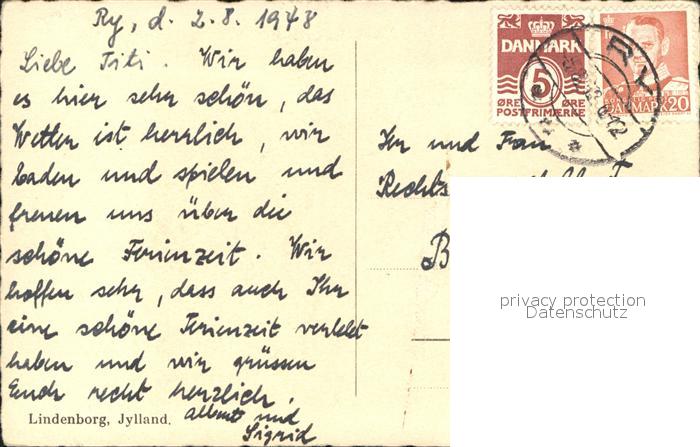 Ry, d. 2.8.1948
Liebe Titi. Wir haben
es hier sehr schön, das
Wetter ist herrlich, wir
baden und spielen und
freuen uns über die
schöne Ferienzeit. Wir
hoffen sehr, dass auch Ihr
eine schöne Ferienzeit verlebt
haben und wir grüssen
Euch recht herzlich.
Albert und
Sigrid
Lindenborg, Jylland.
DANMARK
5
ØRE ØRE
POSTFRIMÆRKE
DANMARK 20
RY
Hr und Frau
Rechts
B
privacy protection
Datenschutz